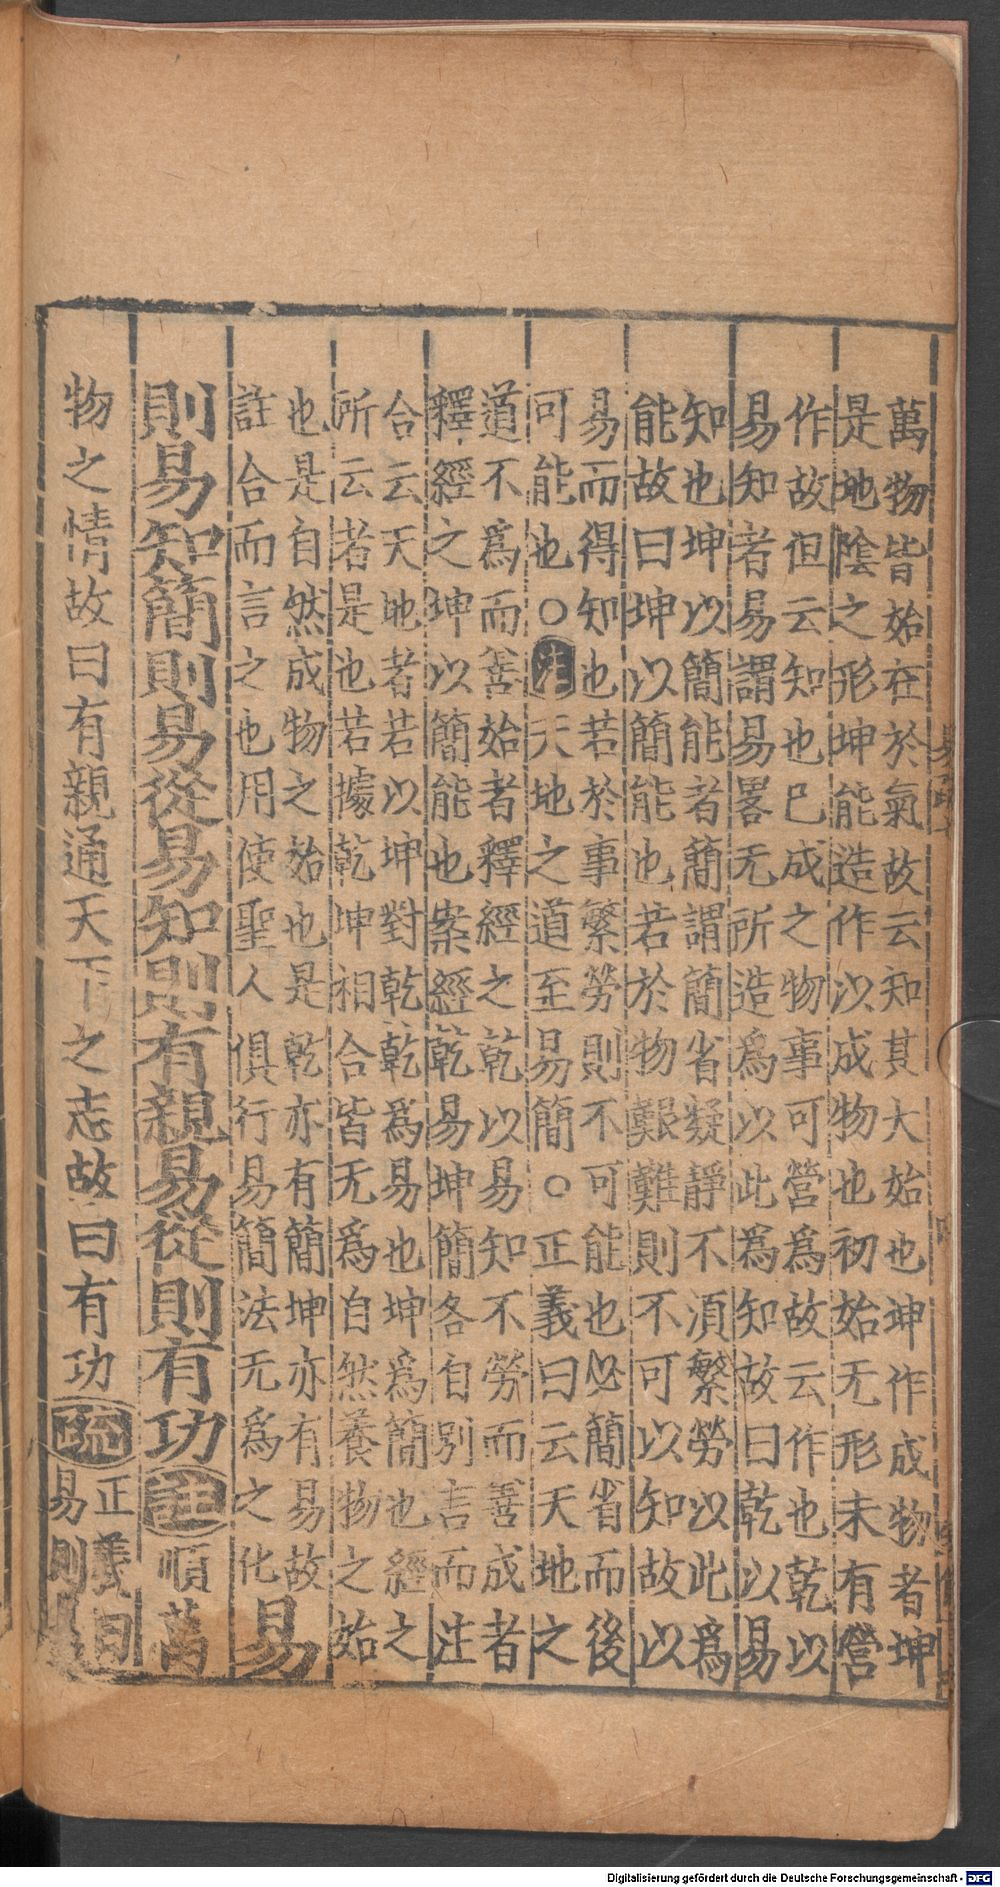 萬物皆始在於氣故云知其大始也坤作成物者坤
是地陰之形坤能造作以成物也初始无形未有營
作故但云知也已成之物事可營爲故云作也乾以
易知者易謂易畧无所造爲以此爲知故曰乾以易
知也坤以簡能者簡謂簡省凝靜不須繁勞以此爲
能故曰坤以簡能也若於物艱難則不可以知故以
易而得知也若於事繁勞則不可能也必簡省而後
可能也○注天地之道至易簡○正義曰云天地之
道不爲而善始者釋經之乾以易知不勞而善成者
釋經之坤以簡能也案經乾易坤簡各自別言而注
合云天地者若以坤對乾乾爲易也坤爲簡也經之
所云者是也若據乾坤相合皆无爲自然養物之始
也是自然成物之始也是乾亦有簡坤亦有易故
註合而言之也用使聖人俱行易簡法无爲之化
易
則易知簡則易從易知則有親易從則有功註順萬
物之情故曰有親通天下之志故曰有功疏
正義曰
易則
Digitalisierung gefördert durch die Deutsche Forschungsgemeinschaft - DFG